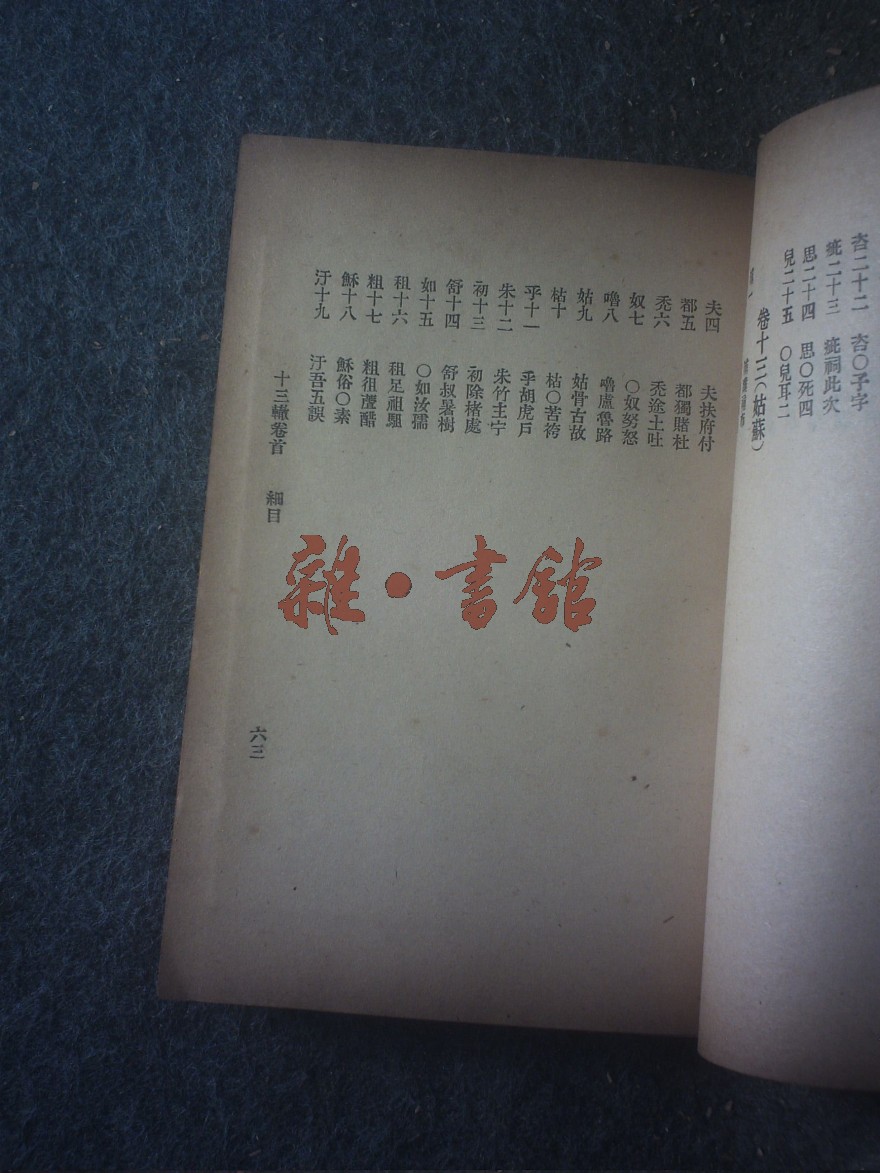 厺二十二 厺〇子字
疵二十三 疵祠此次
思二十四 思〇死四
兒二十五 〇兒耳二
卷十三(姑蘇)
夫四 夫扶府付
都五 都獨賭杜
禿六 禿途土吐
奴七 〇奴努怒
嚕八 嚕盧魯路
姑九 姑骨古故
枯十 枯〇苦袴
乎十一 乎胡虎戶
朱十二 朱竹主宁
初十三 初除楮處
舒十四 舒叔暑樹
如十五 〇如汝孺
租十六 租足祖駔
粗十七 粗徂蔖醋
穌十八 穌俗〇素
汙十九 汙吾五誤
十三轍卷首 細目
六三
雜·書館